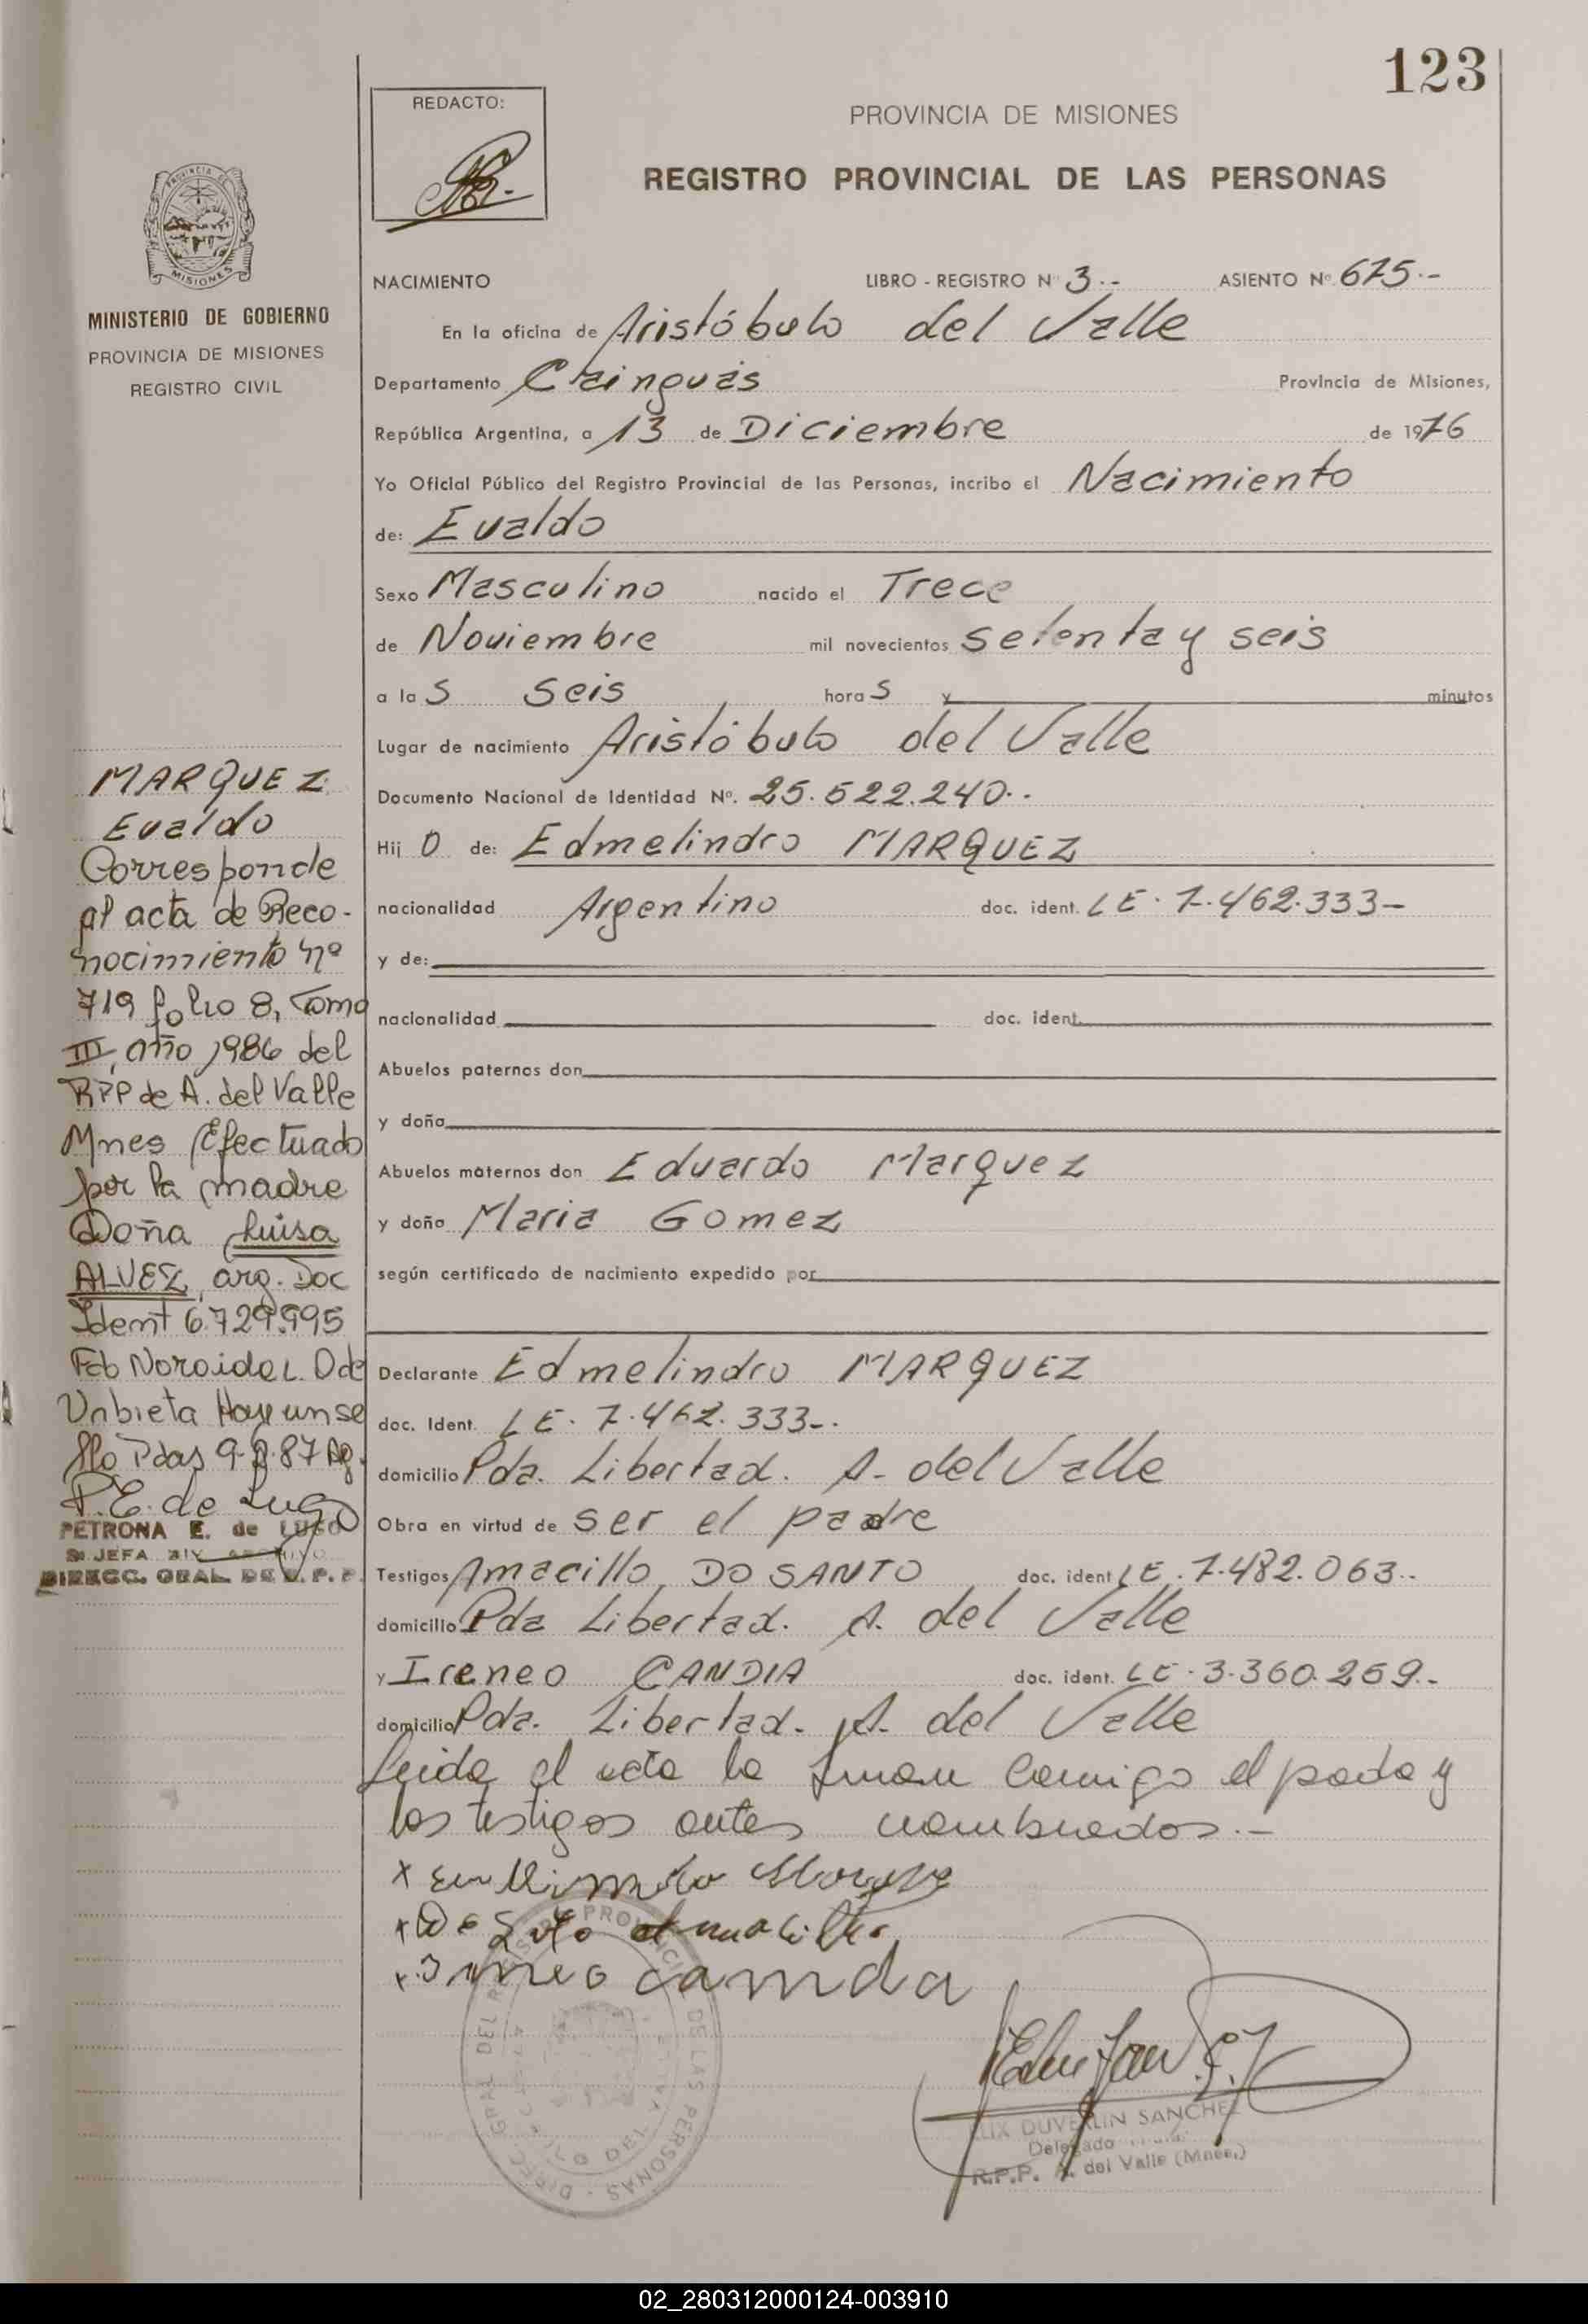 123
REDACTO:
PROVINCIA DE MISIONES
REGISTRO PROVINCIAL DE LAS PERSONAS
PROVINCIA DE
MISIONES
MINISTERIO DE GOBIERNO
PROVINCIA DE MISIONES
REGISTRO CIVIL
NACIMIENTO LIBRO - REGISTRO Nº 3.-- ASIENTO Nº 675.--
En la oficina de Aristóbulo del Valle
Departamento Cainguás Provincia de Misiones,
República Argentina, a 13 de Diciembre de 1976
Yo Oficial Público del Registro Provincial de las Personas, incribo el Nacimiento
de: Evaldo
Sexo Masculino nacido el Trece
de Noviembre mil novecientos setenta y seis
a las seis horas y minutos
Lugar de nacimiento Aristóbulo del Valle
Documento Nacional de Identidad Nº. 25.522.240.-
Hijo de: Edmelindro MARQUEZ
nacionalidad Argentino doc. ident. LE. 7.462.333-
y de:
nacionalidad doc. ident.
Abuelos paternos don
y doña
Abuelos maternos don Eduardo Marquez
y doña Maria Gomez
según certificado de nacimiento expedido por
Declarante Edmelindro MARQUEZ
doc. Ident. LE. 7.462.333-.
domicilio Pda. Libertad. A. del Valle
Obra en virtud de ser el padre
Testigos Amacillo DO SANTO doc. ident LE. 7.482.063.-
domicilio Pda Libertad. A. del Valle
y Ireneo CANDIA doc. ident. LE. 3.360.259.-
domicilio Pda. Libertad. A. del Valle
Leida el acta la firman conmigo el padre y
los testigos antes nombrados.-
MARQUEZ
Evaldo
Corresponde
al acta de Reco-
nocimiento nº
719 folio 8, Tomo
III, año 1986 del
RPP de A. del Valle
Mnes Efectuado
por la madre
Doña Luisa
ALVEZ, arg. Doc
Ident 6.729.995
P.E. de Lugo
PETRONA E. de LUGO
JEFA DIV. ARCHIVO
DIRECC. GRAL DE R. P. P.
DUVERLIN SANCHEZ
Delegado
R.P.P. A. del Valle (Mnes.)
DIREC. GRAL DEL REGISTRO PROVINCIAL DE LAS PERSONAS
02_280312000124-003910